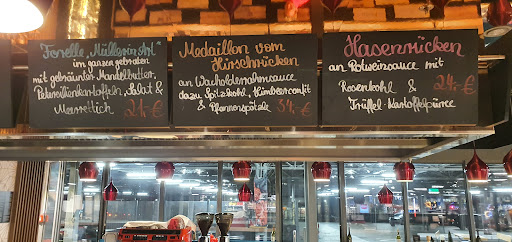 Forelle "Müllerin Art"
im ganzen gebraten
mit gebräunter Mandelbutter,
Petersilienkartoffeln, Salat &
Meerrettich 21,-€
Medaillon vom
Hirschrücken
an Wacholderrahmsauce
dazu Spitzkohl, Himbeerconfit
& Pfannenspätzle 34,-€
Hasenrücken
an Rotweinsauce mit
Rosenkohl & 24,-€
Trüffel-Kartoffelpüree